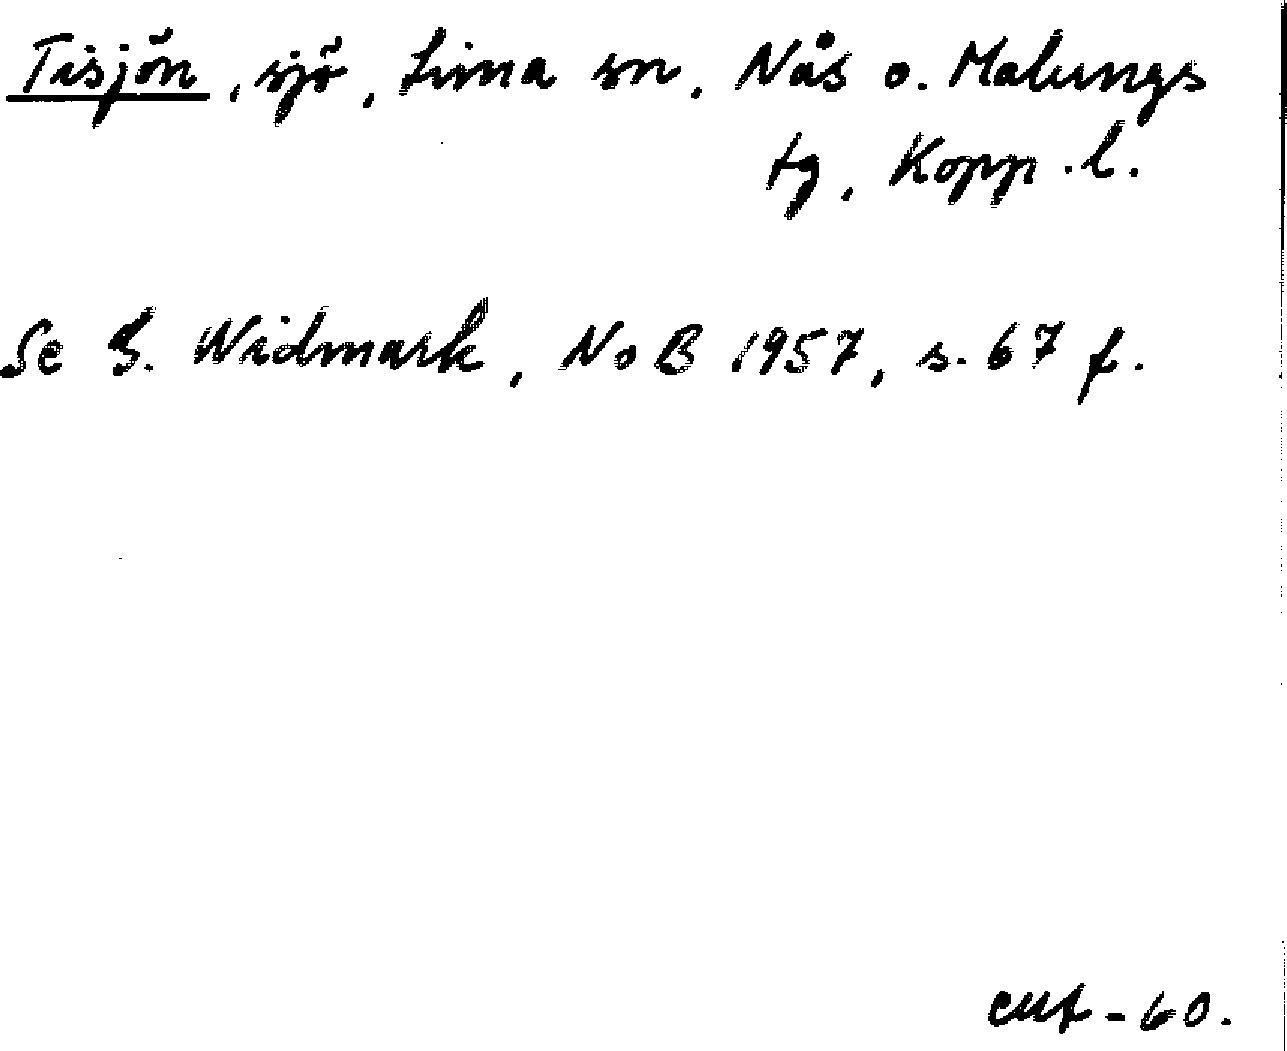 Tisjön, sjö, Lima sn, Nås o. Malungs
tg, Kopp. l.
Se G. Widmark, NoB 1957, s. 67 f.
-60.